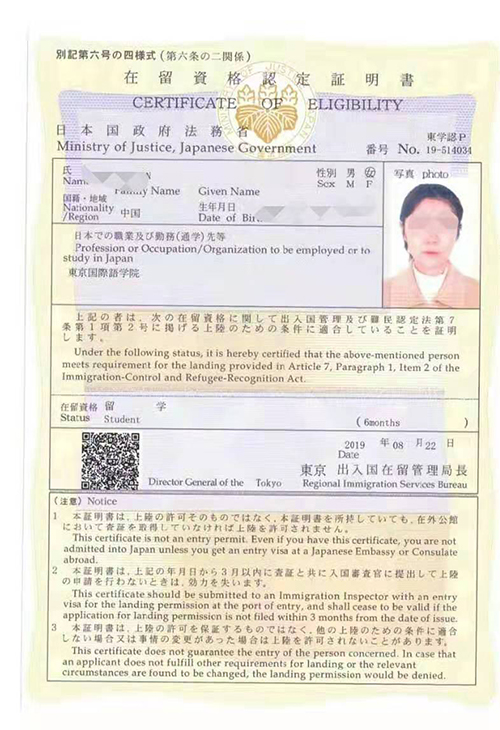 別記第六号の四様式(第六条の二関係)
在留資格認定証明書
CERTIFICATE OF ELIGIBILITY
日本国政府法務省
東学認P
Ministry of Justice, Japanese Government 番号 No. 19-514034
氏 性別 男 女 写真 photo
Name Sex M F
Family Name Given Name
国籍・地域 生年月日
Nationality 中国 Date of
/Region
日本での職業及び勤務(通学)先等
Profession or Occupation/Organization to be employed or to
study in Japan
東京国際語学院
上記の者は、次の在留資格に関して出入国管理及び難民認定法第7
条第1項第2号に掲げる上陸のための条件に適合していることを証明
します。
Under the following status, it is hereby certified that the above-mentioned person
meets requirement for the landing provided in Article 7, Paragraph 1, Item 2 of the
Immigration-Control and Refugee-Recognition Act.
在留資格 留 学
Status Student (6months )
2019 年 08 月 22 日
Date
東京 出入国在留管理局長
Director General of the Tokyo Regional Immigration Services Bureau
(注意) Notice
1 本証明書は、上陸の許可そのものではなく、本証明書を所持していても、在外公館
において査証を取得していなければ上陸を許可されません。
This certificate is not an entry permit. Even if you have this certificate, you are not
admitted into Japan unless you get an entry visa at a Japanese Embassy or Consulate
abroad.
2 本証明書は、上記の年月日から3月以内に査証と共に入国審査官に提出して上陸
の申請を行わないときは、効力を失います。
This certificate should be submitted to an Immigration Inspector with an entry
visa for the landing permission at the port of entry, and shall cease to be valid if the
application for landing permission is not filed within 3 months from the date of issue.
3 本証明書は、上陸の許可を保証するものではなく、他の上陸のための条件に適合
しない場合又は事情の変更があった場合は上陸を許可されないことがあります。
This certificate does not guarantee the entry of the person concerned. In case that
an applicant does not fulfill other requirements for landing or the relevant
circumstances are found to be changed, the landing permission would be denied.